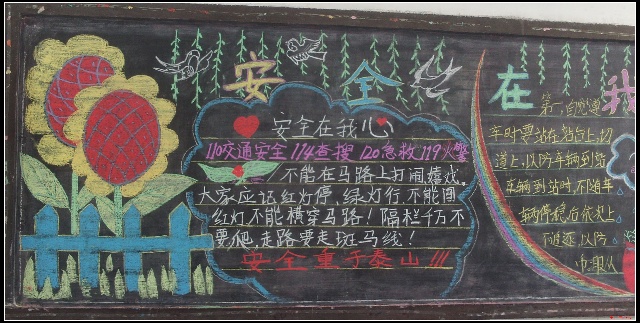 安全在我
安全在我心
110交通安全 114查搜 120急救 119火警
不能在马路上打闹嬉戏.
大家应记红灯停,绿灯行,不能闯
红灯不能横穿马路!隔栏千万不
要爬,走路要走斑马线!
安全重于泰山!!!
第一,自觉遵
车时要站在站台上,切
道上,以防车辆到站
车辆到站时,不随车
辆停稳后依次上
不追逐,以防
服从